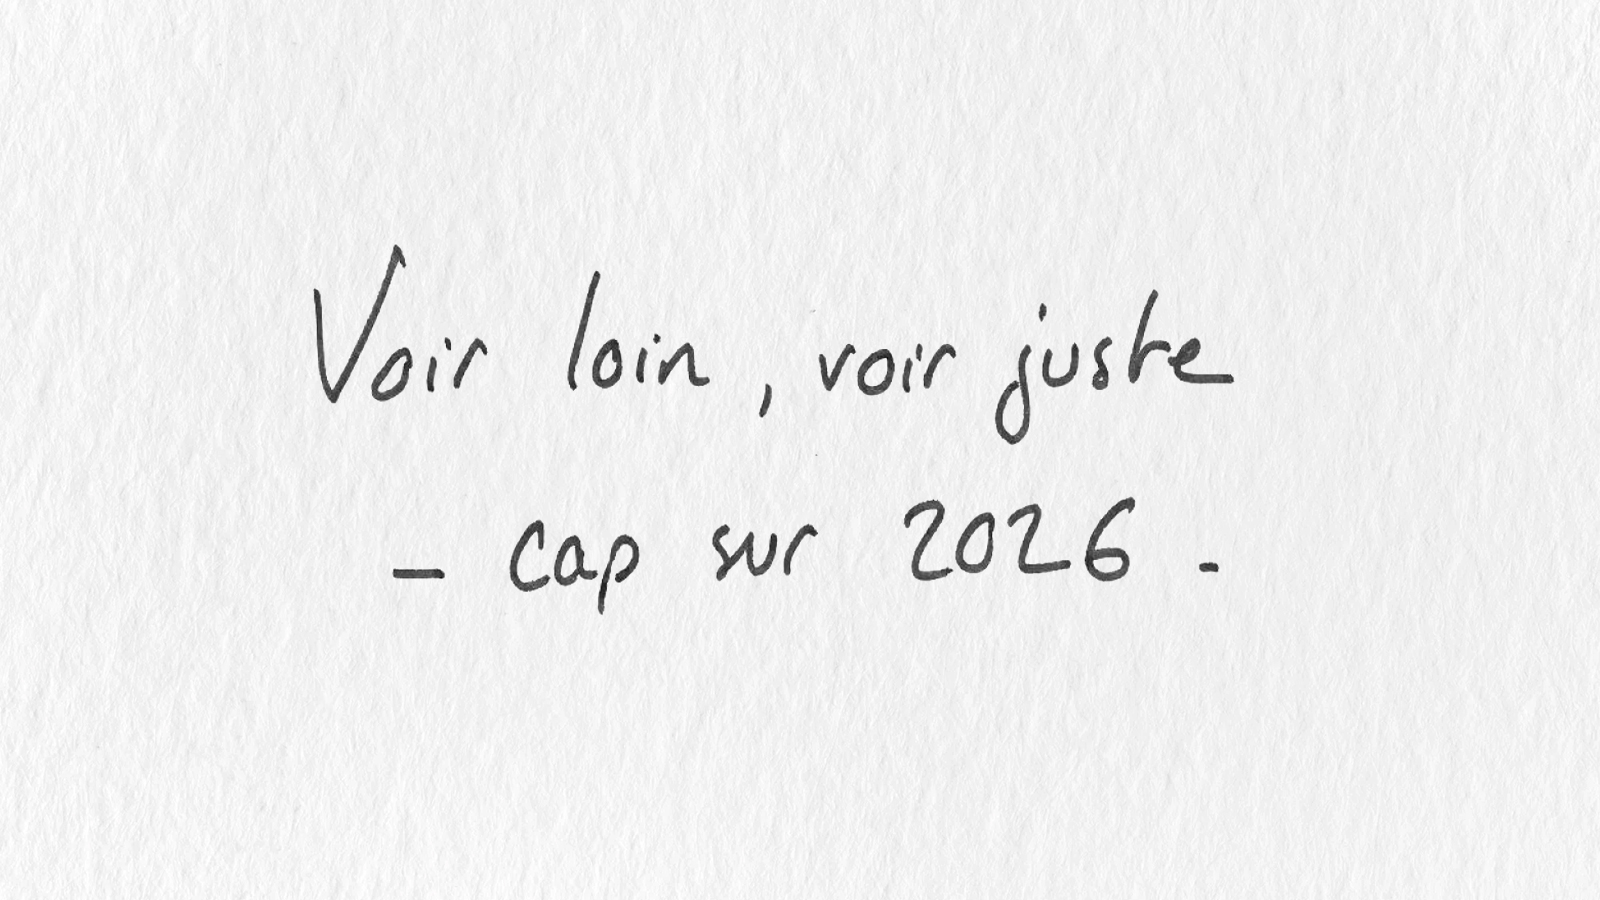 Voir loin, voir juste
- cap sur 2026 -